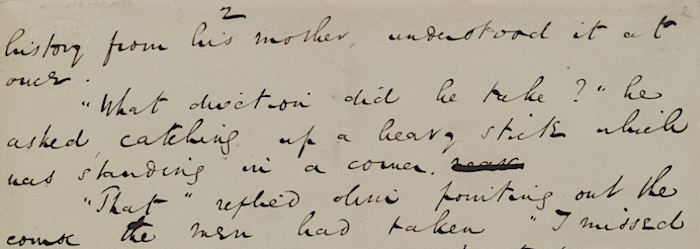 2
history from his mother, understood it at
once.
"What direction did he take?" he
asked, catching up a heavy stick which
was standing in a corner.
"That" replied Olini pointing out the
course the men had taken "I missed